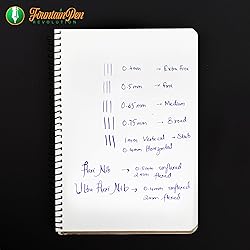 FountainPen
REVOLUTION
0.4mm → Extra Fine
0.5mm → Fine
0.65mm → Medium
0.75mm → Broad
1mm Vertical → Stub
0.4mm Horizontal
Flexi Nib → 0.5mm unflexed
2mm flexed
Ultra Flexi Nib → 0.4mm unflexed
2mm flexed